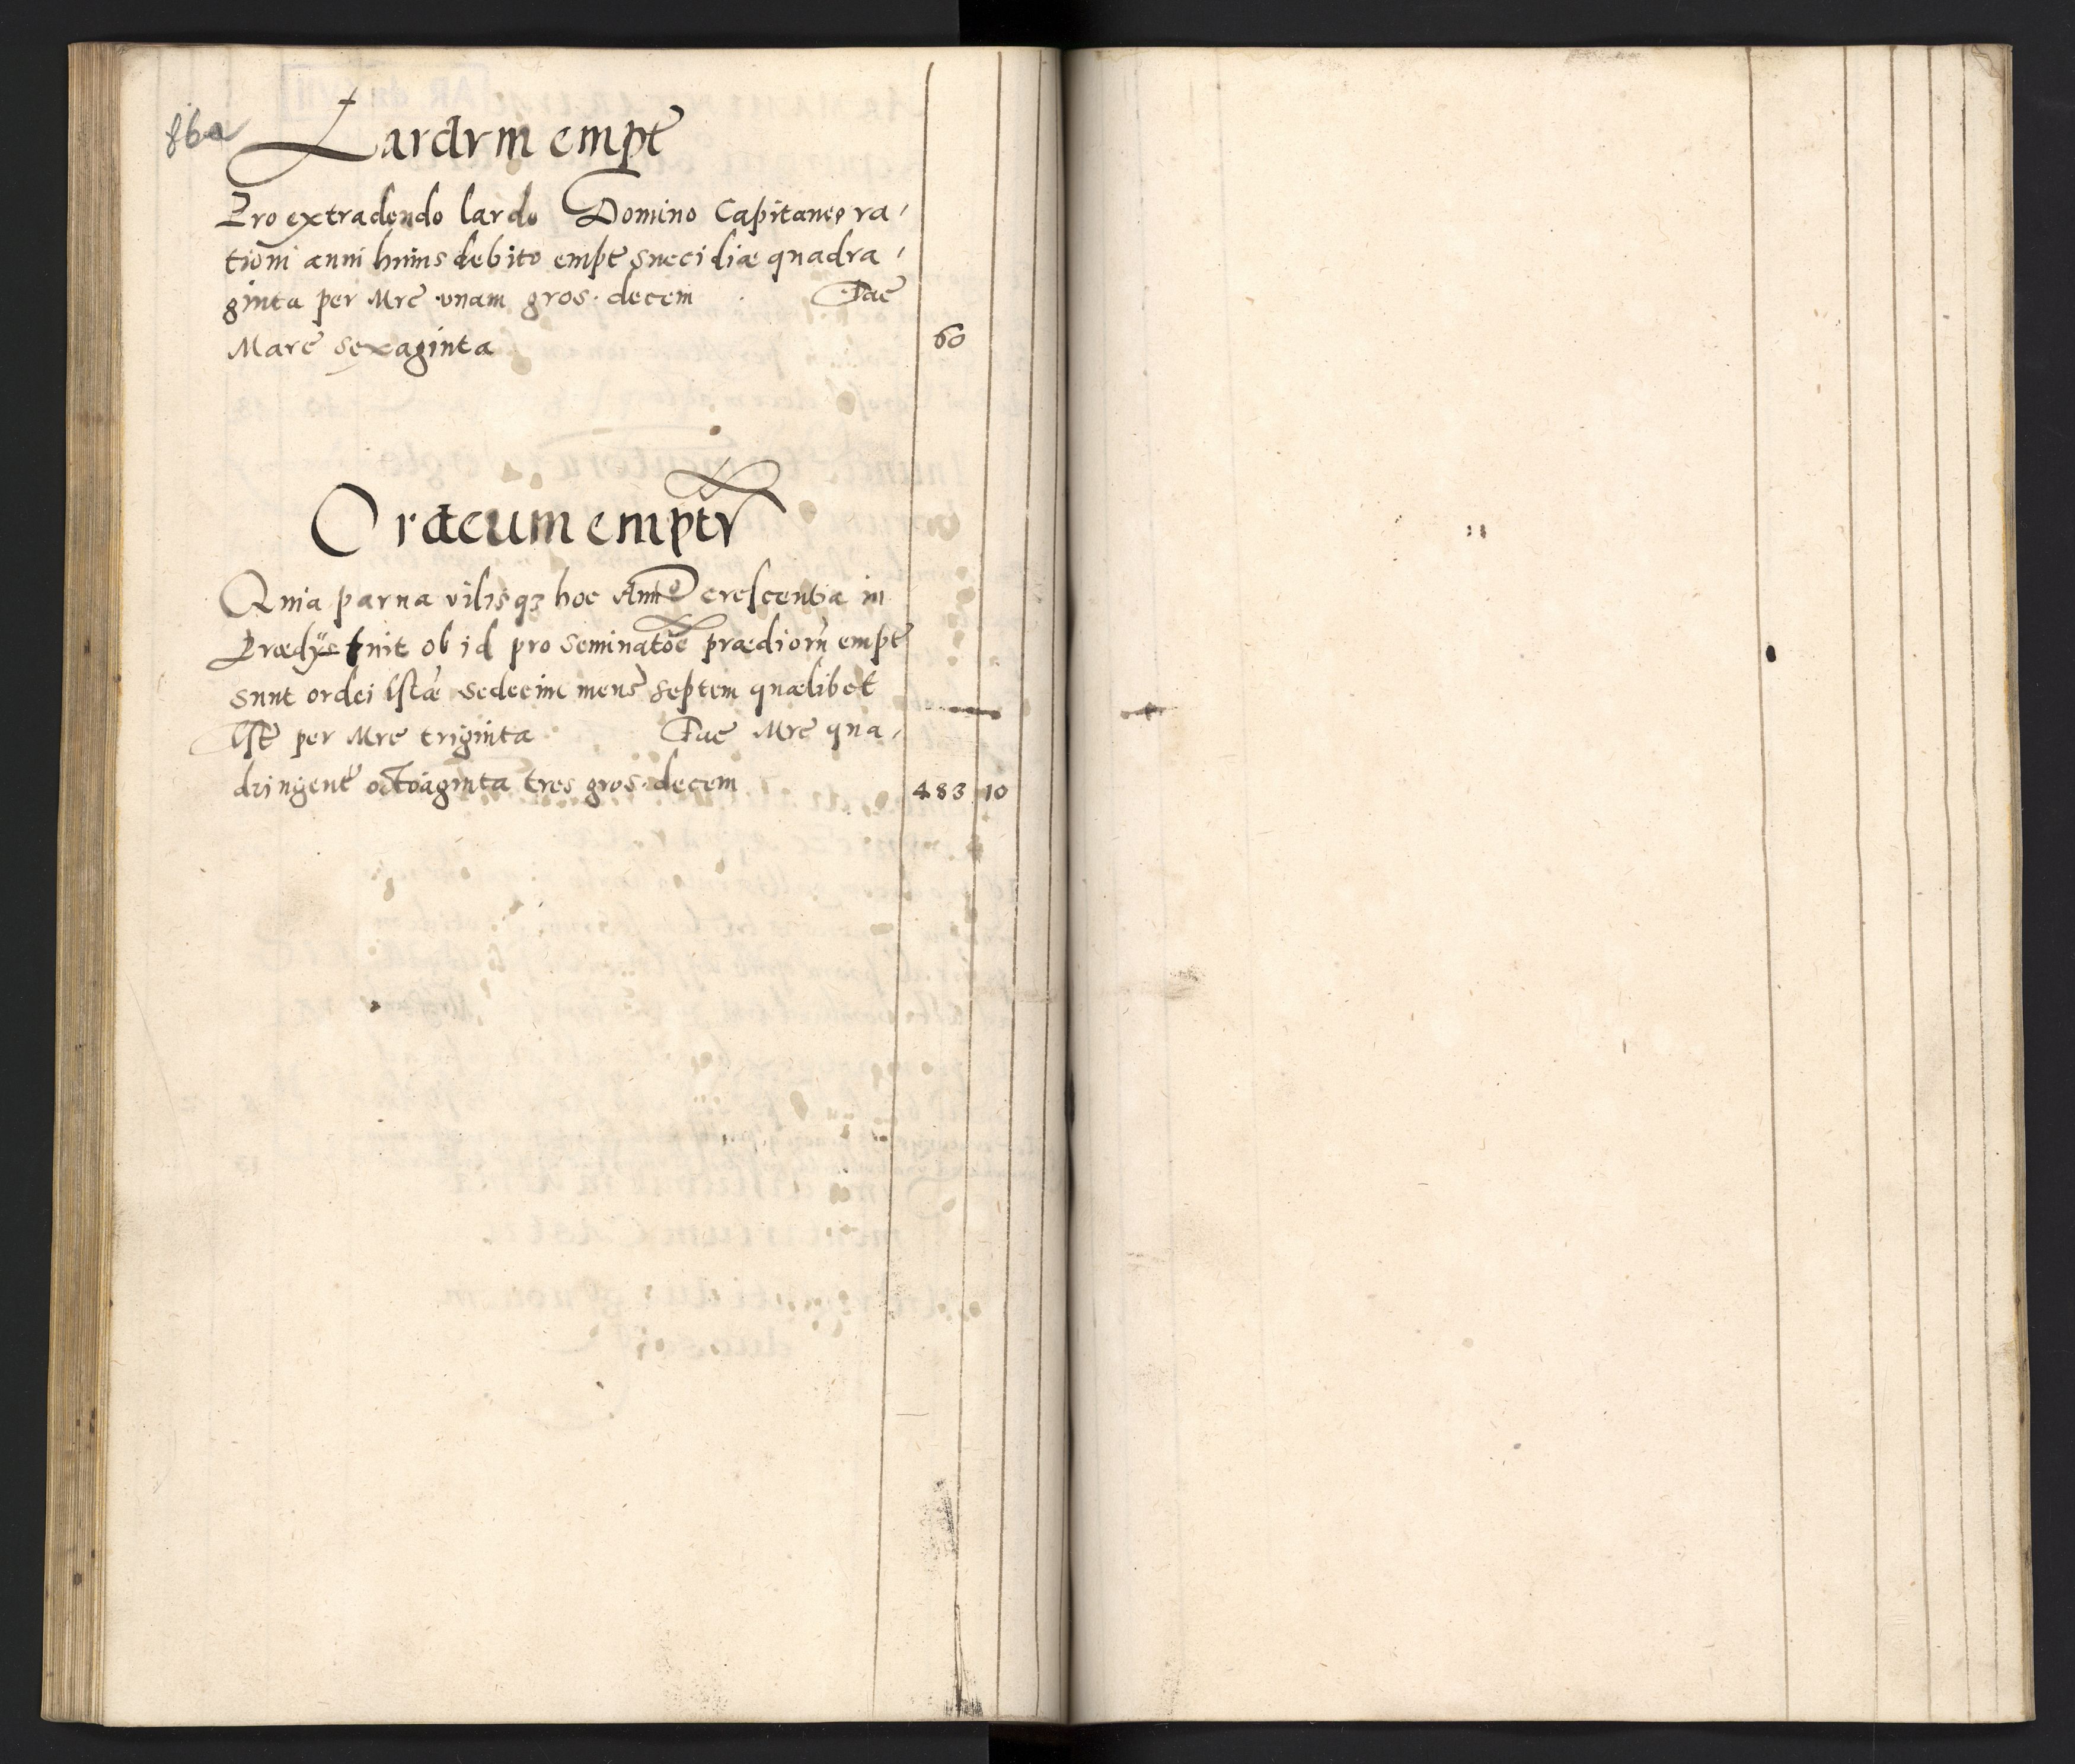 86a
Lardum empt
Pro extradendo lardo Domino Capitaneo ra,
tioni anni huius debito empte succidiæ quadra,
ginta per Mrc unam gros. decem Fac
Marc sexaginta 60
Ordeum emptū
Quia parua vilisqȝ hoc Anno crescentia in
Prædijs fuit ob id pro seminatōe prædiorū empt
sunt ordei lstæ sedecim mens septem quælibet
lst per Mrc triginta Fac Mrc qua,
dringent octoaginta tres gros. decem 483 10